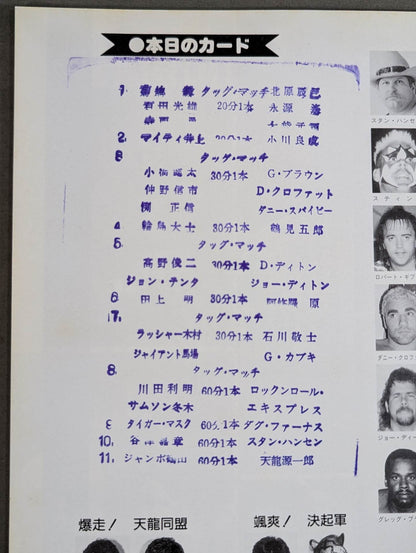 ●本日のカード
1. 菊地 毅 タッグ・マッチ 北原辰巳
百田光雄 20分1本 永源 遙
2. マイティ井上 20分1本 小川良成
3. タッグ・マッチ
小橋健太 30分1本 G・ブラウン
仲野信市 D・クロファット
渕 正信 ダニー・スパイビー
4. 輪島大士 30分1本 鶴見五郎
5. タッグ・マッチ
高野俊二 30分1本 D・ディトン
ジョン・テンタ ジョー・ディトン
6. 田上 明 30分1本 阿修羅 原
7. タッグ・マッチ
ラッシャー木村 30分1本 石川敬士
ジャイアント馬場 G・カブキ
8. タッグ・マッチ
川田利明 60分1本 ロックンロール・
サムソン冬木 エキスプレス
9. タイガー・マスク 60分1本 ダグ・ファーナス
10. 谷津嘉章 60分1本 スタン・ハンセン
11. ジャンボ鶴田 60分1本 天龍源一郎
爆走! 天龍同盟 颯爽! 決起軍
スタン・ハンセ
スティン
ロバート・ギブ
ダニー・クロフ
ジョー・ディー
グレッグ・ブ